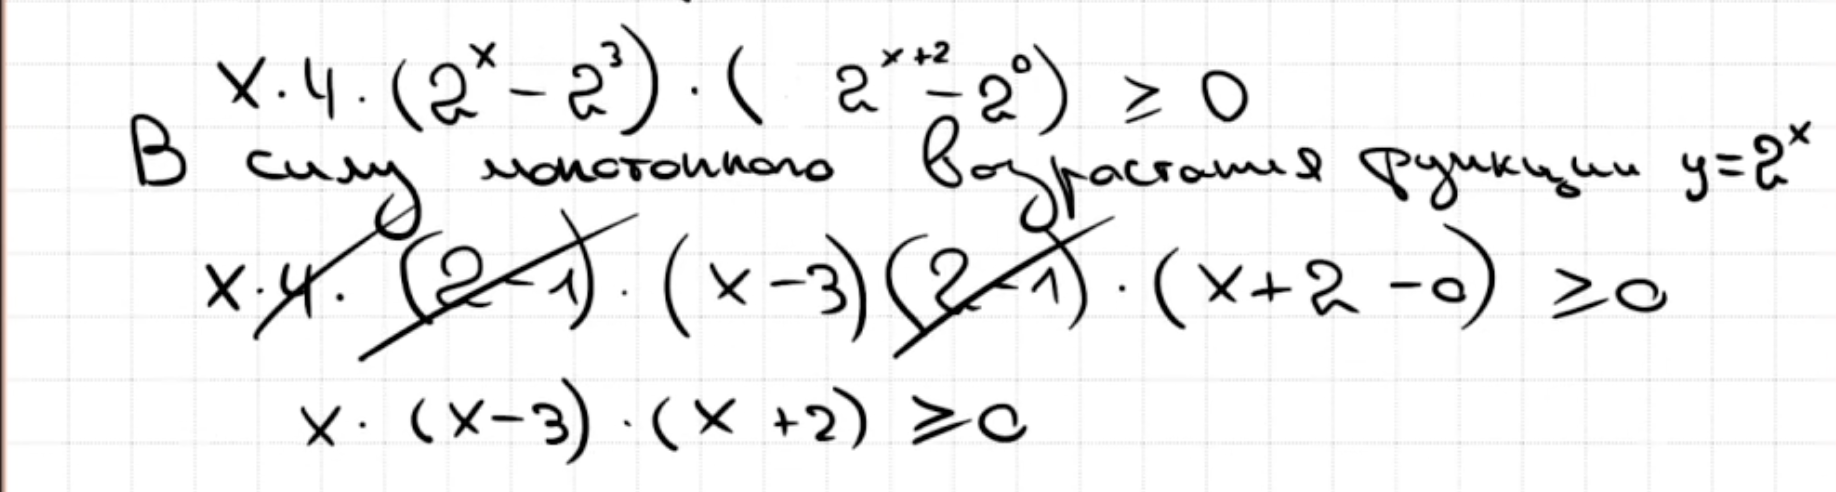 x·4·(2^x − 2^3)·( 2^{x+2} − 2^0) ≥ 0
В силу монотонного возрастания функции y=2^x
x·4·(2−1)·(x−3)(2−1)·(x+2−0) ≥0
x·(x−3)·(x+2) ≥0